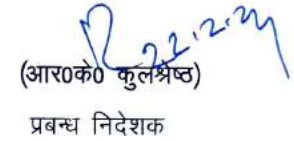 22.2.24
(आर0के0 कुलश्रेष्ठ)
प्रबन्ध निदेशक